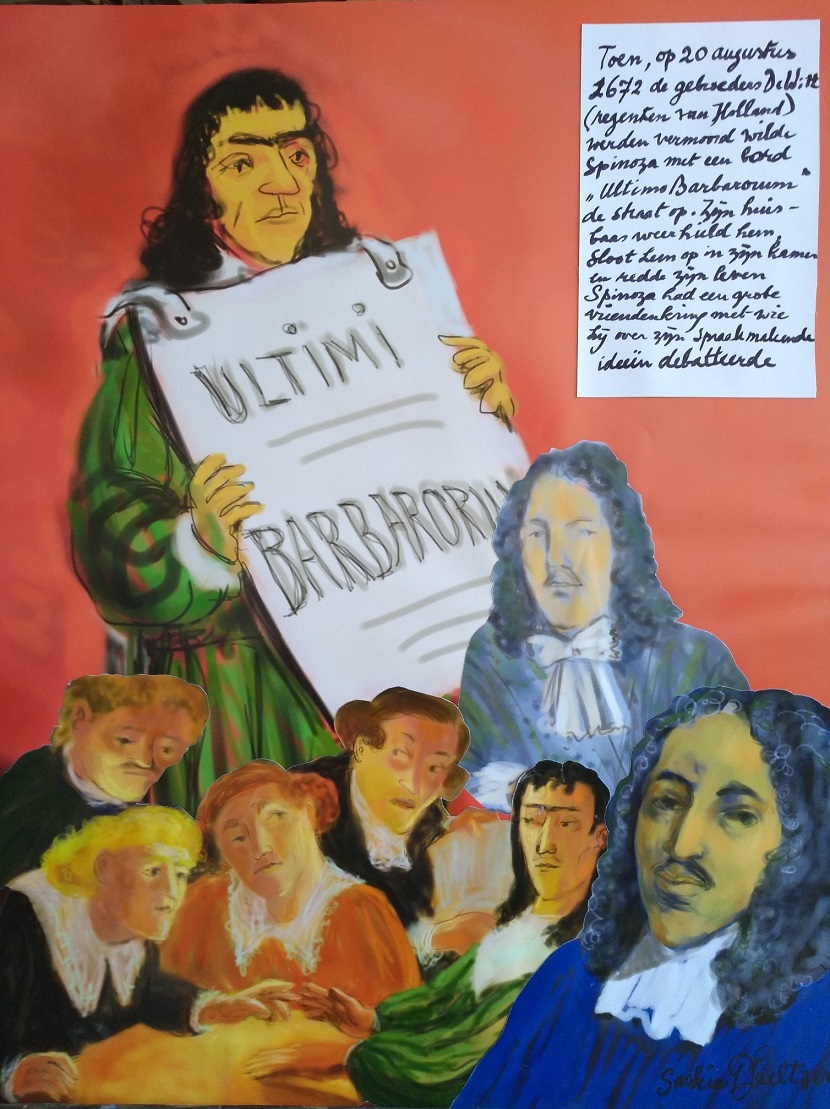 Toen, op 20 augustus
1672 de gebroeders DeWitt
(regenten van Holland)
werden vermoord wilde
Spinoza met een bord
„Ultimo Barbarorum"
de straat op. Zijn huis-
baas weerhield hem,
sloot hem op in zijn kamer
en redde zijn leven
Spinoza had een grote
vriendenkring met wie
hij over zijn spraakmakende
ideeïn debatteerde
ULTIMI
BARBARORUM
Saskia